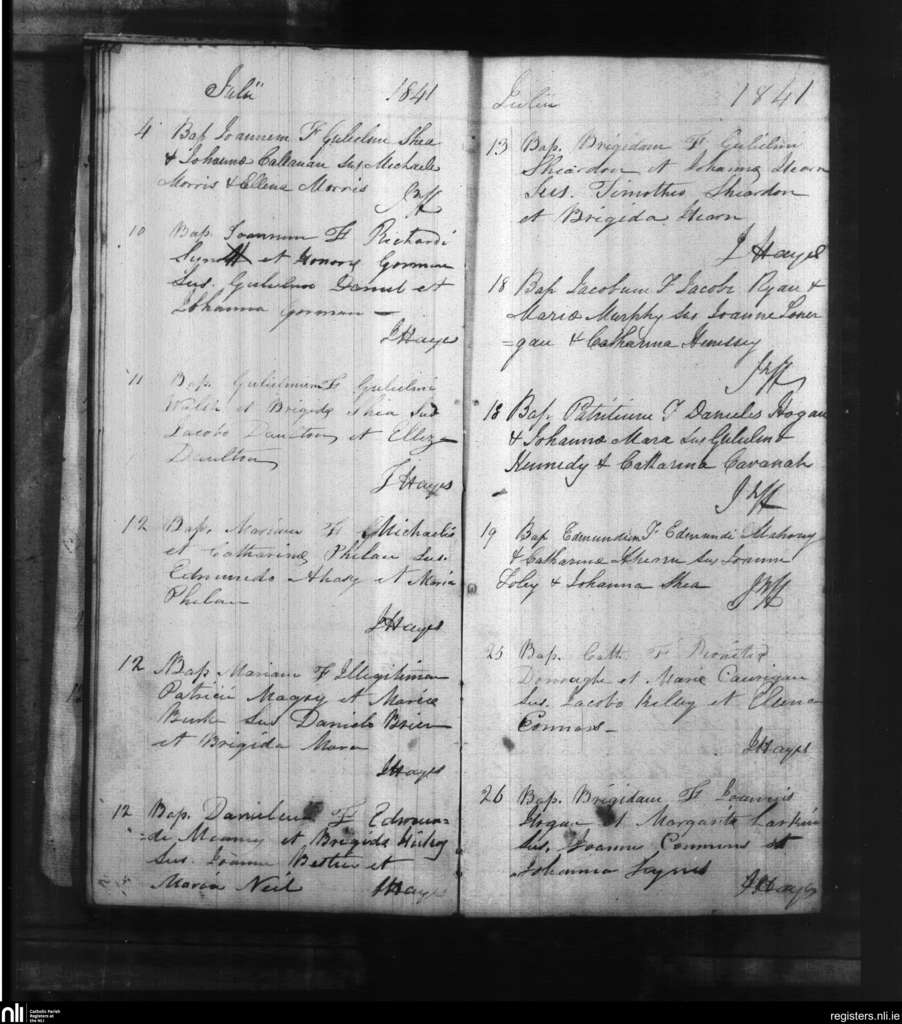 Julii 1841
4 Bap Joannem F Gulielmi Shea
& Johannæ Callanan Sus Michaele
Morris & Ellena Morris
10 Bap. Joannem F Richardi
et Honoræ Gorman
Sus. Gulielmo Daniel et
Johanna Gorman
J Hayes
11 Bap. Gulielmum F Gulielmi
Walsh et Brigidæ Shea Sus
Jacobo Daulton et Eliza
Daulton
J Hayes
12 Bap. Mariam F Michaelis
et Catharinæ Phelan Sus.
Edmundo Ahasy et Maria
Phelan
J Hayes
12 Bap Mariam F Illegitimam
Patricii Magry et Mariæ
Burke Sus Daniele Brien
et Brigida Mara
J Hayes
12 Bap. Danielem F Edmun-
=di Meaney et Brigidæ
Sus. Joanne et
Maria Neil J Hayes
Julii 1841
13 Bap. Brigidam F Gulielmi
Sheardon et Johannæ Hearn
Sus. Timotheo Sheardon
et Brigida Hearn
J Hayes
18 Bap Jacobum F Jacobi Ryan &
Mariæ Murphy Sus Joanne Loner
=gan & Catharina Henessey
18 Bap. Patritium F Danielis Hogan
& Johannæ Mara Sus Gulielmo
Kennedy & Catharina Cavanah
19 Bap Edmundum F Edmundi Mahony
& Catharinæ Ahearn Sus Joanne
Foley & Johanna Shea
25 Bap. Cath F
et Mariæ
Sus. Jacobo Kelley et Elena
Connors
J Hayes
26 Bap. Brigidam F Joannis
Hogan et Margaritæ Larkin
Sus. Joanne Commins et
Johanna
J Hayes
nli Catholic Parish
Registers at
the NLI
registers.nli.ie